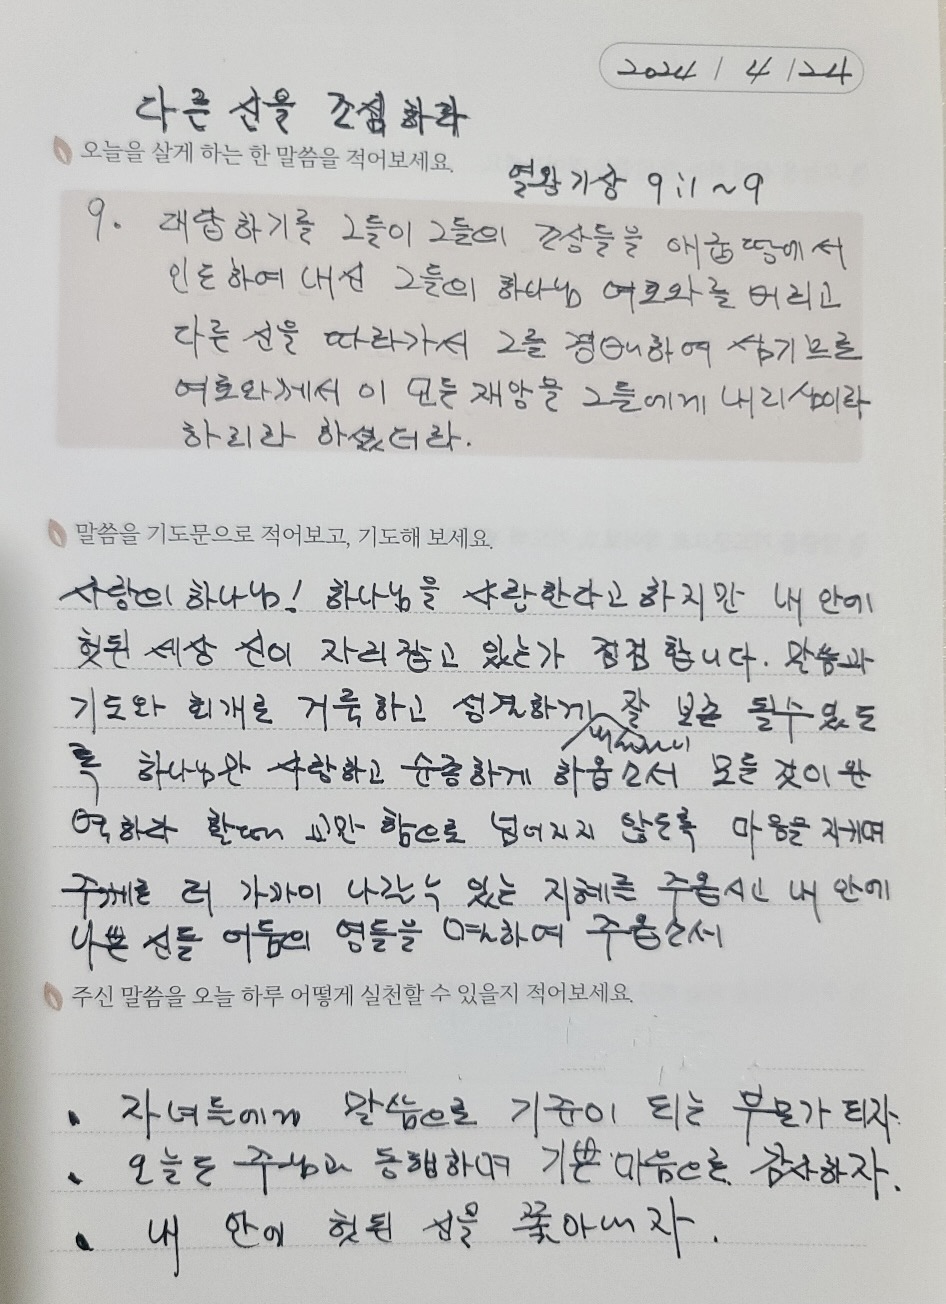 2024 / 4 / 24
다른 신을 조심하라
오늘을 살게 하는 한 말씀을 적어보세요.
열왕기상 9:1~9
9. 대답하기를 그들이 그들의 조상들을 애굽땅에서
인도하여 내신 그들의 하나님 여호와를 버리고
다른 신을 따라가서 그를 경배하여 섬기므로
여호와께서 이 모든 재앙을 그들에게 내리심이라
하리라 하셨더라.
말씀을 기도문으로 적어보고, 기도해 보세요.
사랑의 하나님! 하나님을 사랑한다고 하지만 내 안에
헛된 세상 신이 자리잡고 있는가 점검합니다. 말씀과
기도와 회개로 거룩하고 성결하게 잘 보존 될수 있도
록 하나님만 사랑하고 순종하게 하옵소서 모든 것이 완
역하라 할때 교만 함으로 넘어지지 않도록 마음을 지키며
주께로 더 가까이 나갈수 있는 지혜를 주옵시고 내 안에
나쁜 신들 어둠의 영들을 멸하여 주옵소서
주신 말씀을 오늘 하루 어떻게 실천할 수 있을지 적어보세요.
• 자녀들에게 말씀으로 기준이 되는 부모가 되자.
• 오늘도 주님과 동행하며 기쁜 마음으로 감사하자.
• 내 안에 헛된 신을 쫓아내자.